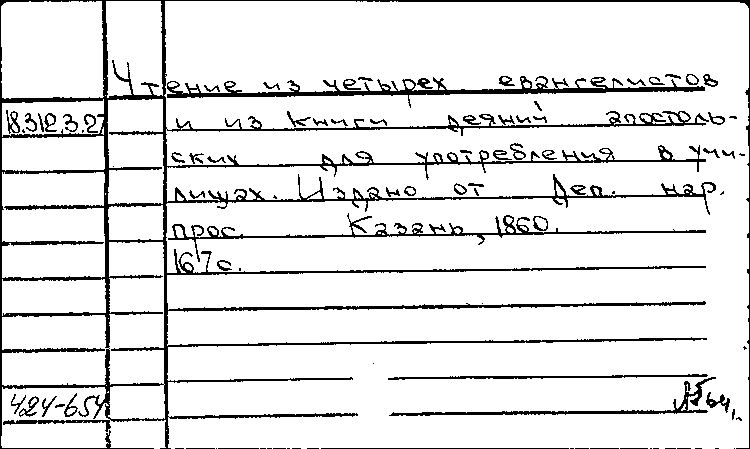 Чтение из четырех евангелистов
18.312.3.27 и из книги деяний апостоль-
ских для употребления в учи-
лищах. Издано от Деп. нар.
прос. Казань, 1860.
167с.
424-654
64